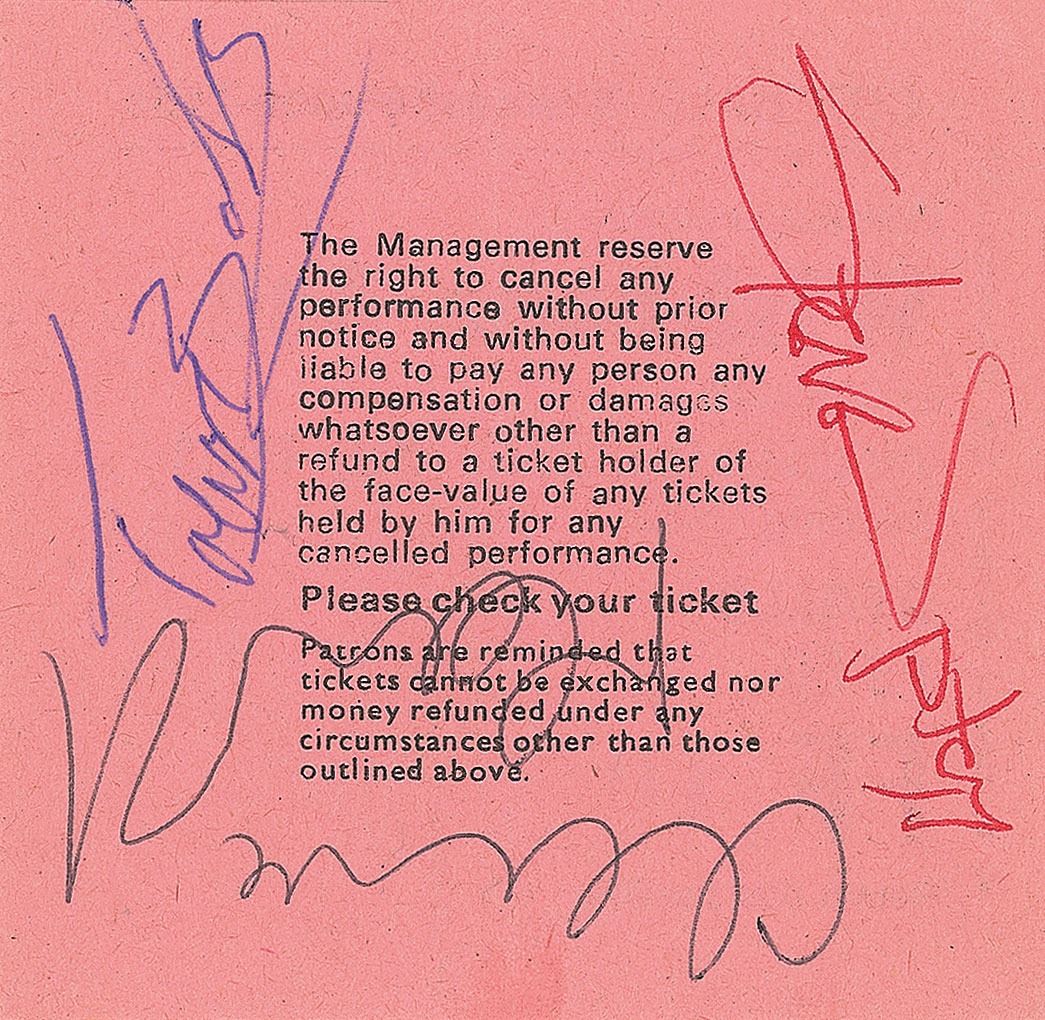 The Management reserve
the right to cancel any
performance without prior
notice and without being
liable to pay any person any
compensation or damages
whatsoever other than a
refund to a ticket holder of
the face-value of any tickets
held by him for any
cancelled performance.
Please check your ticket
Patrons are reminded that
tickets cannot be exchanged nor
money refunded under any
circumstances other than those
outlined above.